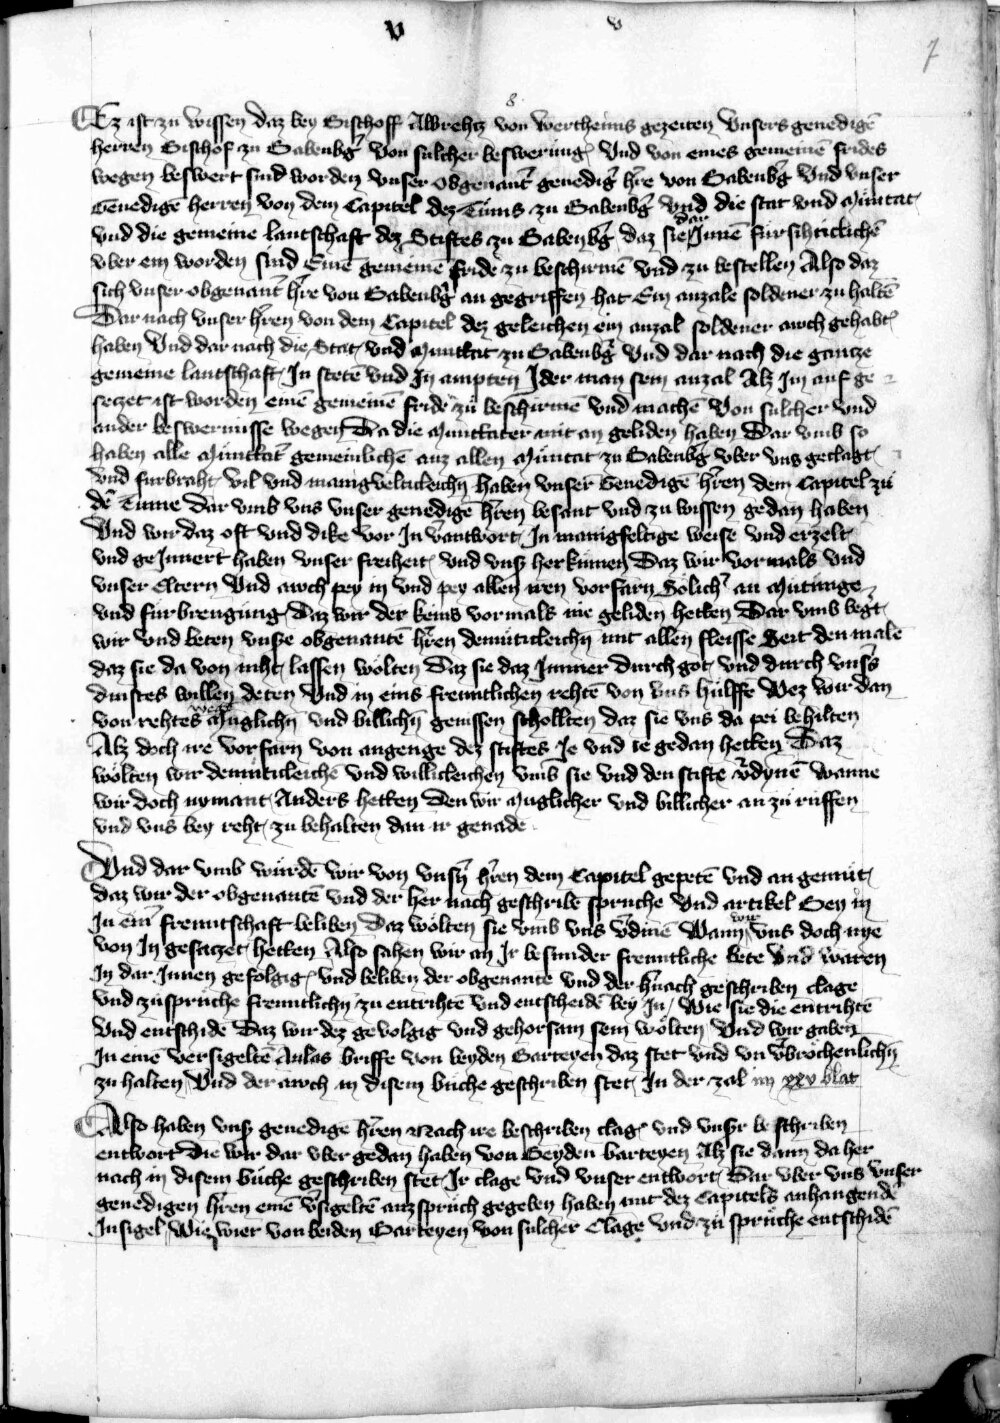 v v
7
8.
Ez ist zu wissen daz bey Bischoff Albrehtz von wertheims gezeiten Vnsers genedigē
herren Bischof zu Babenbg̃ Von sulcher beswerung Vnd von eines gemeinē frides
wegen beswert sind worden vnser obgenant̃ genedig̃ hr̃e von Babenbg̃ Vnd vnser
Genedige herren von dem Capitel dez Tůms zu Babenbg̃ vnd die stat vnd Mu̇ntat
vnd die gemeine lantschaft dez Stiftes zu Babenbg̃ daz sie dar Jnnē fursihticlichē
vber ein worden sind Einē gemeinē fride zu beschirmē vnd zu bestellen Also daz
sich vnser obgenant hr̃e von Babenbg̃ an gegriffen hat Ein anzale soldener zu haltē
Dar nach vnser hr̃en von dem Capitel dez geleichen ein anzal soldener awch gehabt
haben Vnd dar nach die Stat vnd Muntat zu Babenbg̃ Vnd dar nach die gantze
gemeine lantschaft Jn stetē vnd Jn ampten Jder man sein anzal Alz Jm auf ge
seczet ist worden einē gemeinē fride zu beschirmē vnd machē Von sulcher vnd
ander beswernisse wegen Da die Munttater mit an geliden haben Dar vmb so
haben alle Munttat̃ gemeinlichē auz allen Muntat zu Babenbg̃ vber vns geclagt
vnd furbraht vil vnd manigveltcleichn̄ haben vnser Genedige hr̃en dem Capitel zů
dē Tume Dar vmb vns vnser genedige hr̃en besant vnd zu wissen gedan haben
Vnd wir daz oft vnd dike vor Jn v̄antwort Jn manigfeltige weise vnd erzelt
vnd geJnnert haben vnser freiheit vnd vns̃ herkumen Daz wir vormals vnd
vnser Eltern Vnd awch pey in vnd pey allen iren vorfarn Solich̃ an Mutunge
vnd furbrengung Daz wir der keins vormals nie geliden hetten Dar vmb begt
wir vnd beten vns̃e obgenante hr̃en demuticleichn̄ mit allen fleisse Seit den malē
daz sie da von niht lassen wolten Daz sie daz Jmmer durch got vnd durch vns̃s
dinstes willen deten Vnd in eins freuntlichen rehtē von vns hulffe Wez wir dan
von rehtes wegē Muglichn̄ vnd billichn̄ genissen schollten daz sie vns da pei behilten
Alz doch ire vorfarn von angenge dez stiftes Je vnd ie gedan hetten Daz
wolten wir demuticleichē vnd willicleichen vmb sie vnd den stifte v̄dynē Wanne
wir doch nymant Anders hetten Den wir Muglicher vnd billicher an zů ruffen
vnd vns bey reht zu behalten dan ir genade
Vnd dar vmb würdē wir von vnsn̄ hr̃en dem Capitel gepetē vnd an gemůt
daz wir der obgenantē vnd der her nach geschribē spruche Vnd artikel Bey in
Jn ein̄ freuntschaft beliben Daz wolten sie vmb vns v̄dinē Wann wir vns doch nye
von Jn gesaczet hetten Also sahen wir an Jr besunder freuntliche bete vnd waren
Jn dar Jnnen gefolgig vnd beliben der obgenante vnd der hn̄ach geschriben clage
vnd zuspruche freuntlichn̄ zu entrihtē vnd entscheidē bey Jn Wie sie die entrihtē
Vnd entschide Daz wir dez gevolgig vnd gehorsam sein wolten Vnd wir gaben
Jn einē versigeltē Anlas briffe von beyden Parteyen daz stet vnd vn v̄brochenlichn̄
zu halten Vnd der awch in disem buche geschriben stet Jn der zal im xxv blat
Also haben vns̃ genedige hr̃en Nach ire beschriben clag vnd vns̃r beschriben
entwort Die wir dar vber gedan haben von Beyden barteyen Alz sie dann da her
nach in disem buche geschriben stet Jr clage vnd vnser entwort Dar vber vns vnser
genedigen hr̃en einē v̄sigeltē auzspruch gegeben haben mit dez Capitels anhangendē
Jnsigel Wie wier von beiden Parteyen von sulcher Clage vnd zu spruche entschidē